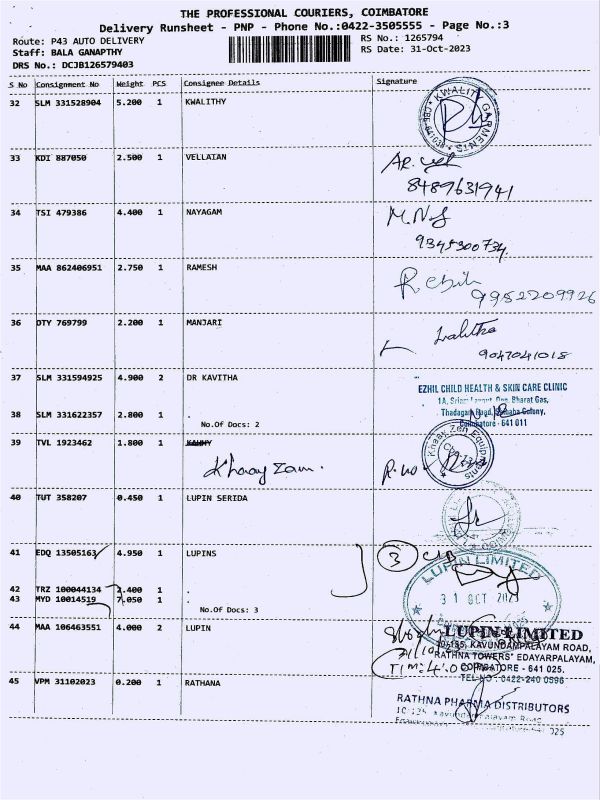 THE PROFESSIONAL COURIERS, COIMBATORE
Delivery Runsheet - PNP - Phone No.:0422-3505555 - Page No.:3
Route: P43 AUTO DELIVERY
RS No.: 1265794
Staff: BALA GANAPTHY
RS Date: 31-Oct-2023
DRS No.: DCJB126579403
S No Consignment No Weight PCS Consignee Details Signature
32 SLM 331528904 5.200 1 KWALITHY
KWALITY GARMENTS
33 KDI 887050 2.500 1 VELLAIAN
8489631941
34 TSI 479386 4.400 1 NAYAGAM
9345300734
35 MAA 862406951 2.750 1 RAMESH
9952209926
36 OTY 769799 2.200 1 MANJARI
Lalitha
9047041018
37 SLM 331594925 4.900 2 DR KAVITHA
EZHIL CHILD HEALTH & SKIN CARE CLINIC
Opp. Bharat Gas,
Thadagam Road, Colony,
Coimbatore - 641 011
38 SLM 331622357 2.800 1
No.Of Docs: 2
39 TVL 1923462 1.800 1
Khaay Zam.
Khaay Zen Equipments
40 TUT 358207 0.450 1 LUPIN SERIDA
41 EDQ 13505163 4.950 1 LUPINS
3
LUPIN LIMITED
31 OCT 202
42 TRZ 100044134 2.400 1
43 MYD 10014519 7.050 1
No.Of Docs: 3
44 MAA 106463551 4.000 2 LUPIN
LUPIN LIMITED
10-135, KAVUNDAMPALAYAM ROAD,
RATHNA TOWERS" EDAYARPALAYAM,
COIMBATORE - 641 025.
TEL NO : 0422-240 0596
45 VPM 31102023 0.200 1 RATHANA
RATHNA PHARMA DISTRIBUTORS
10-135, Kavundampalayam Road,
025